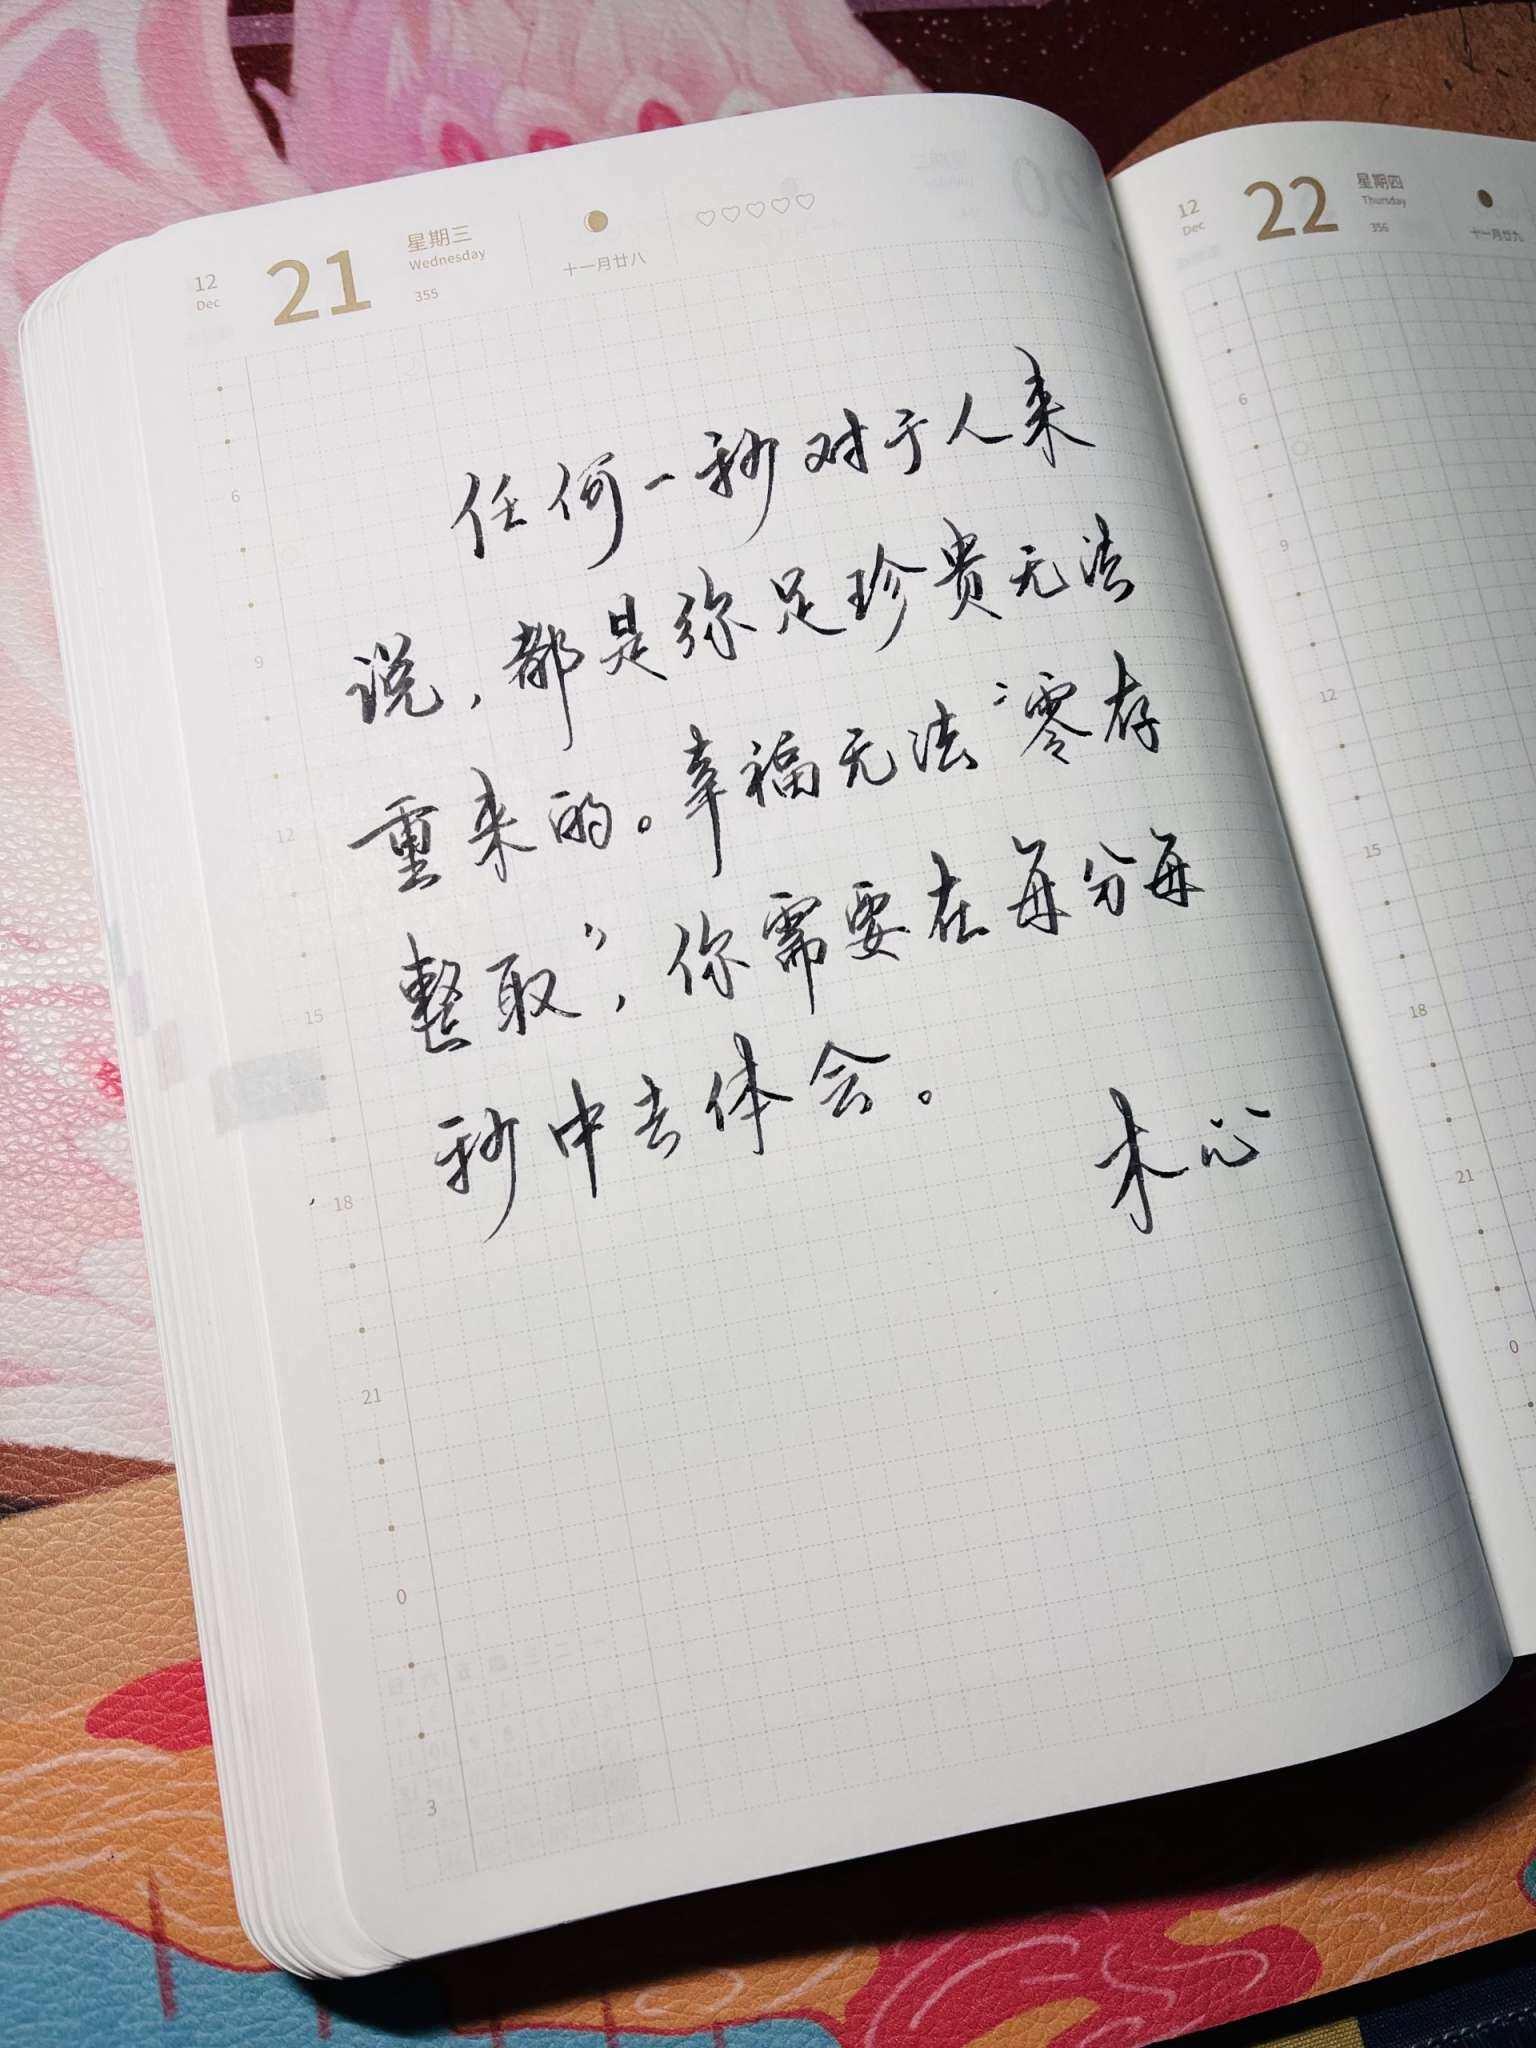 12
Dec
21
星期三
Wednesday
355
十一月廿八
任何一秒对于人来
说，都是弥足珍贵无法
重来的。幸福无法“零存
整取”，你需要在每分每
秒中去体会。
木心
6
9
12
15
18
21
0
3
12
Dec
22
星期四
Thursday
356
十一月廿九
6
9
12
15
18
21
0